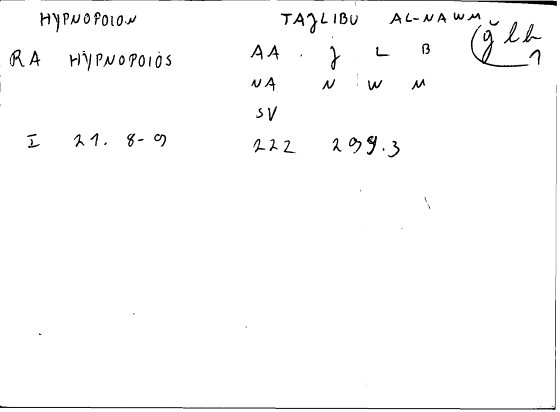 HYPNOPOION TAJLIBU AL-NAWM
(ǧ lb 1
RA HYPNOPOIOS AA . J L B
NA N W M
SV
I 21. 8-9 222 299.3